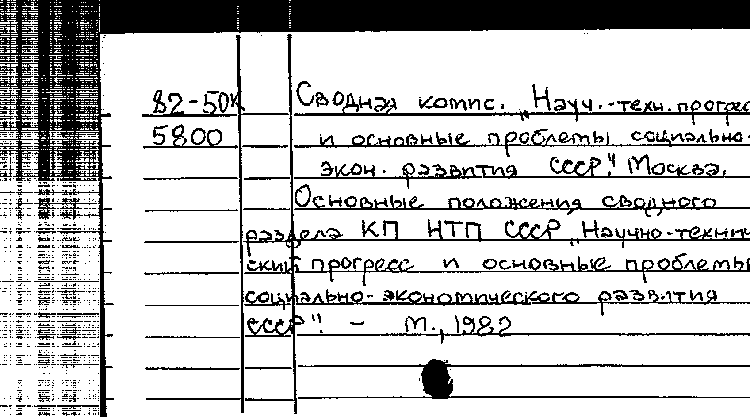 82-50к Сводная компс. „Науч.-техн. прогресс
5800 и основные проблемы социально-
экон. развития СССР". Москва.
Основные положения сводного
раздела КП НТП СССР „Научно-техниче
ский прогресс и основные проблемы
социально-экономического развития
СССР". - М., 1982